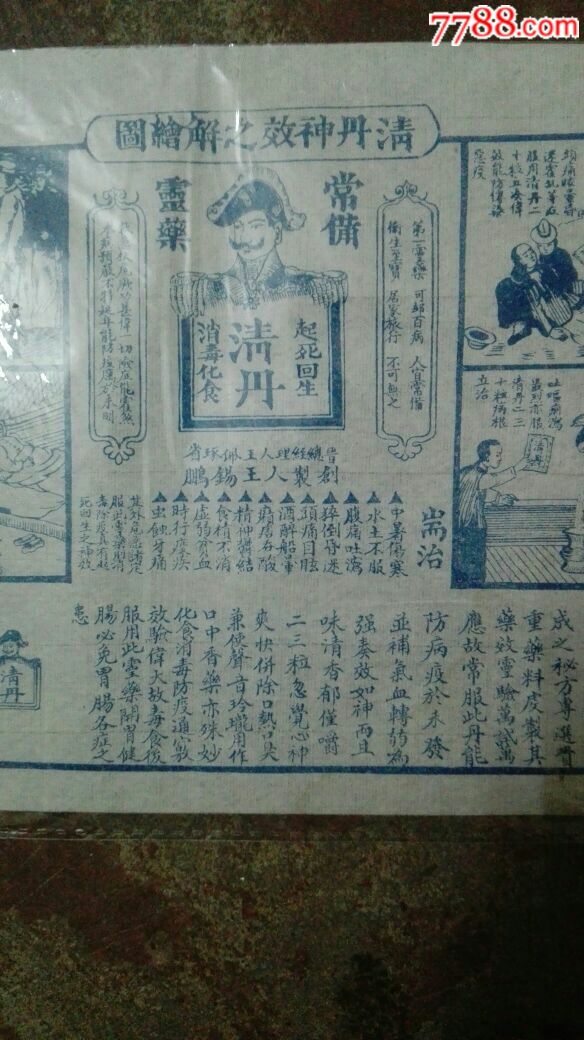 7788.com
清丹神效之解繪圖
常備
靈藥
第一靈藥 可紹百病 人自常備
衞生至寶 居家旅行 不可無之
起死回生
清丹
消毒化食
創製人王錫鵬
耑治
中暑傷寒
水土不服
腹痛吐瀉
猝倒昏迷
頭痛目眩
酒醉船暈
痰痞吞酸
精神鬱結
食積不消
虛弱貧血
時行痙疹
虫蝕牙痛
死回生之神效
頭痛眼暈或
服用清丹二
十粒
吐嘔
清丹二三
十粒病根
立治
清丹
成之秘方專選貴
重藥料度製其
藥效靈驗萬試萬
應故常服此丹能
防病疫於未發
並補氣血轉弱為
强奏效如神而且
味清香郁僅嚼
二三粒忽覺心神
爽快併除口熱口臭
兼使聲音玲瓏用作
口中香藥亦殊妙
化食消毒防疫通竅
效驗偉大故毒食後
服用此靈藥開胃健
腸必免胃腸各症之
患
清丹